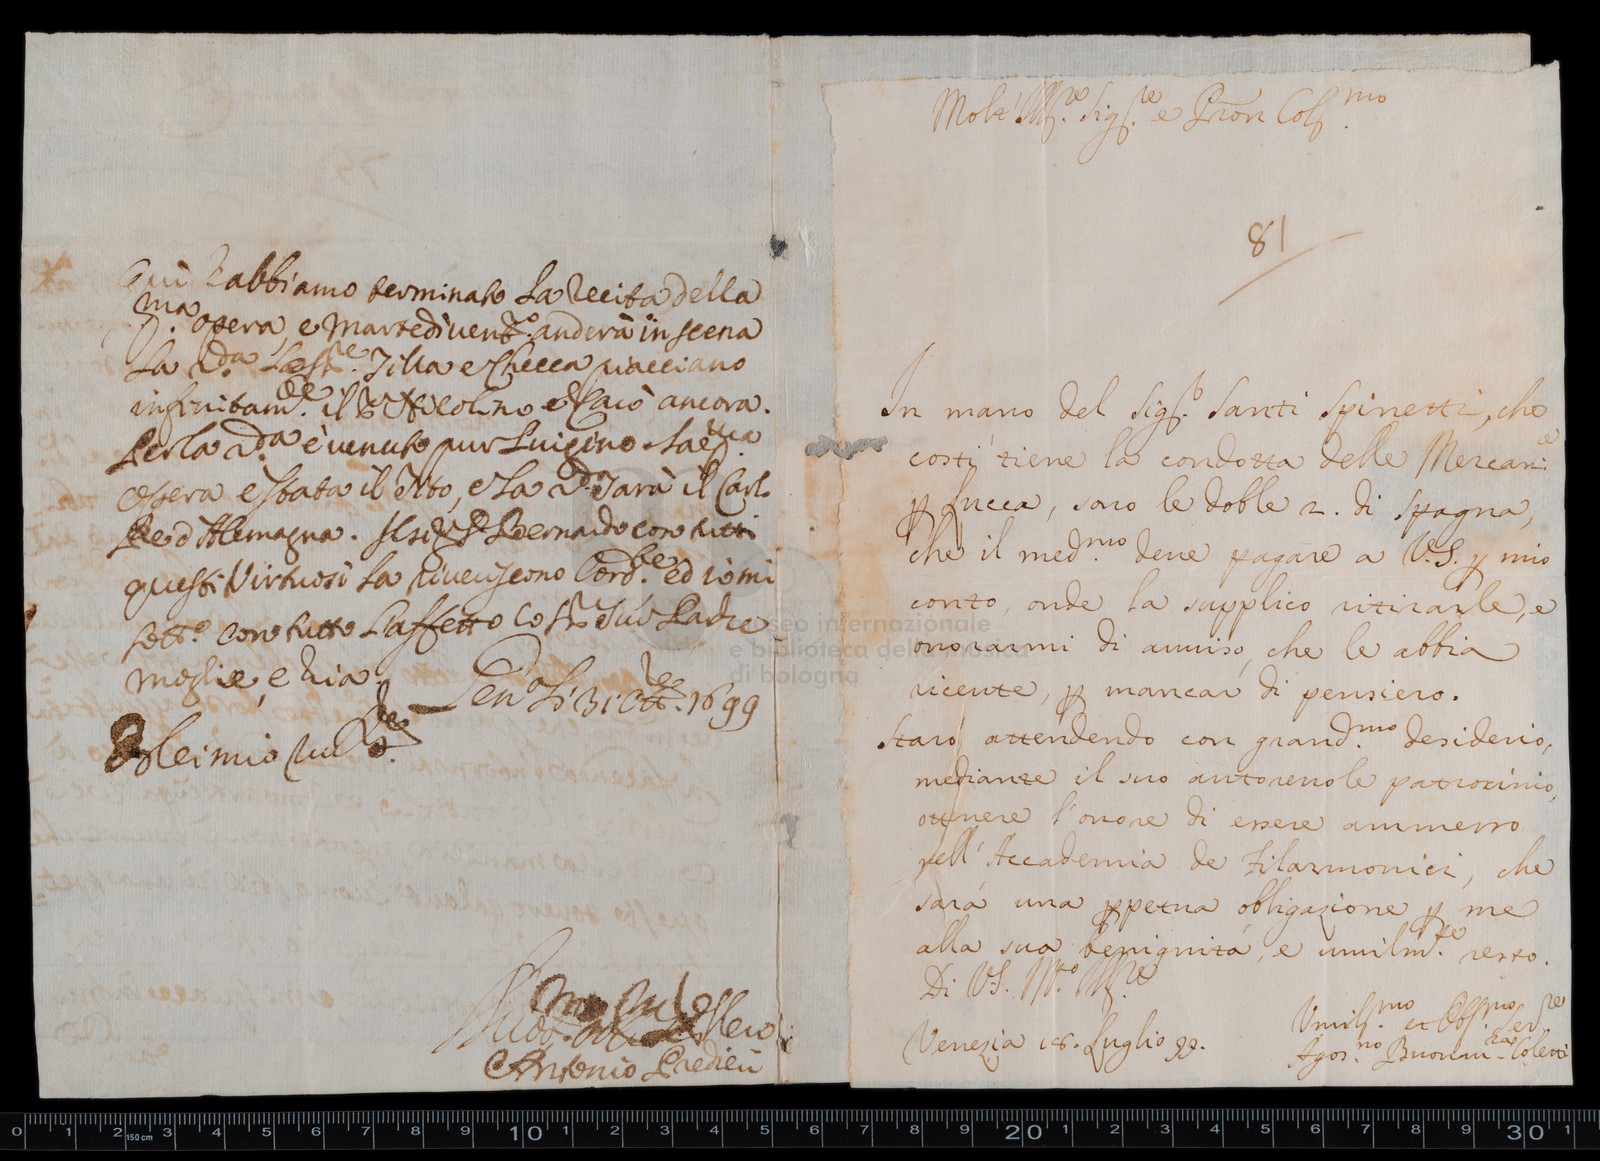 Quì habbiamo terminato la recita della
p.ma opera, e Martedì vent.o anderà in scena
la 2.da La Tilla e Checca piacciano
infinitam.te il Nicolino e ancora.
Per la 2.da è venuto pur Luigino. La p.ma
opera è stata il Tito, e la 2.da sarà il Carlo
Re d'Alemagna. Il Sig.r Bernardo con tutti
questi Virtuosi la riveriscono Cord.te ed io mi
sott.o con tutto l'affetto Suo Padre
moglie, e Zia.
Gen.a li 31 1699
Di lei mio
Antonio Predieri
Molt' Ill.re Sig.re e Pron Col.mo
81
In mano del Sig.r Santi Spinetti, che
costì tiene la condotta delle Mercanz.e
p Lucca, sarò le doble 2. di Spagna,
che il med.mo deve pagare a V.S. p mio
conto, onde la supplico ritirarle, e
onorarmi di avviso, che le abbia
riceute, p mancar di pensiero.
Starò attendendo con grand.mo desiderio,
mediante il suo autorevole patrocinio,
ottenere l'onore di essere ammesso
nell'Accademia de Filarmonici, che
sarà una ppetua obligazione p me
alla sua benignità, e umilm.te resto.
Di V.S. M.to Ill.re
Venezia 18. Luglio 99.
Umiliss.mo et Obl.mo Ser.re
Agos.no Buonav.ra Coletti
museo internazionale
e biblioteca della musica
di bologna
0 1 2 3 4 5 6 7 8 9 10 1 2 3 4 5 6 7 8 9 20 1 2 3 4 5 6 7 8 9 30 1
150 cm